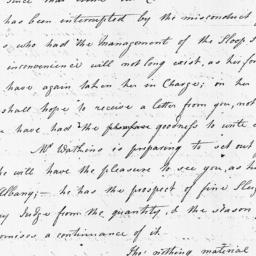 has been interrupted by the misconduct
s who had the management of the Sloop
inconvenience will not long exist, as her for
have again taken her in Charge; on her
shall hope to receive a letter from you, not
u have had the goodness to write
Mr Watkins is preparing to set out
he will have the pleasure to see you, as he
Albany;— he has the prospect of fine Sleig
ay Judge from the quantity, & the season
omises a continuance of it.
Tho' nothing material